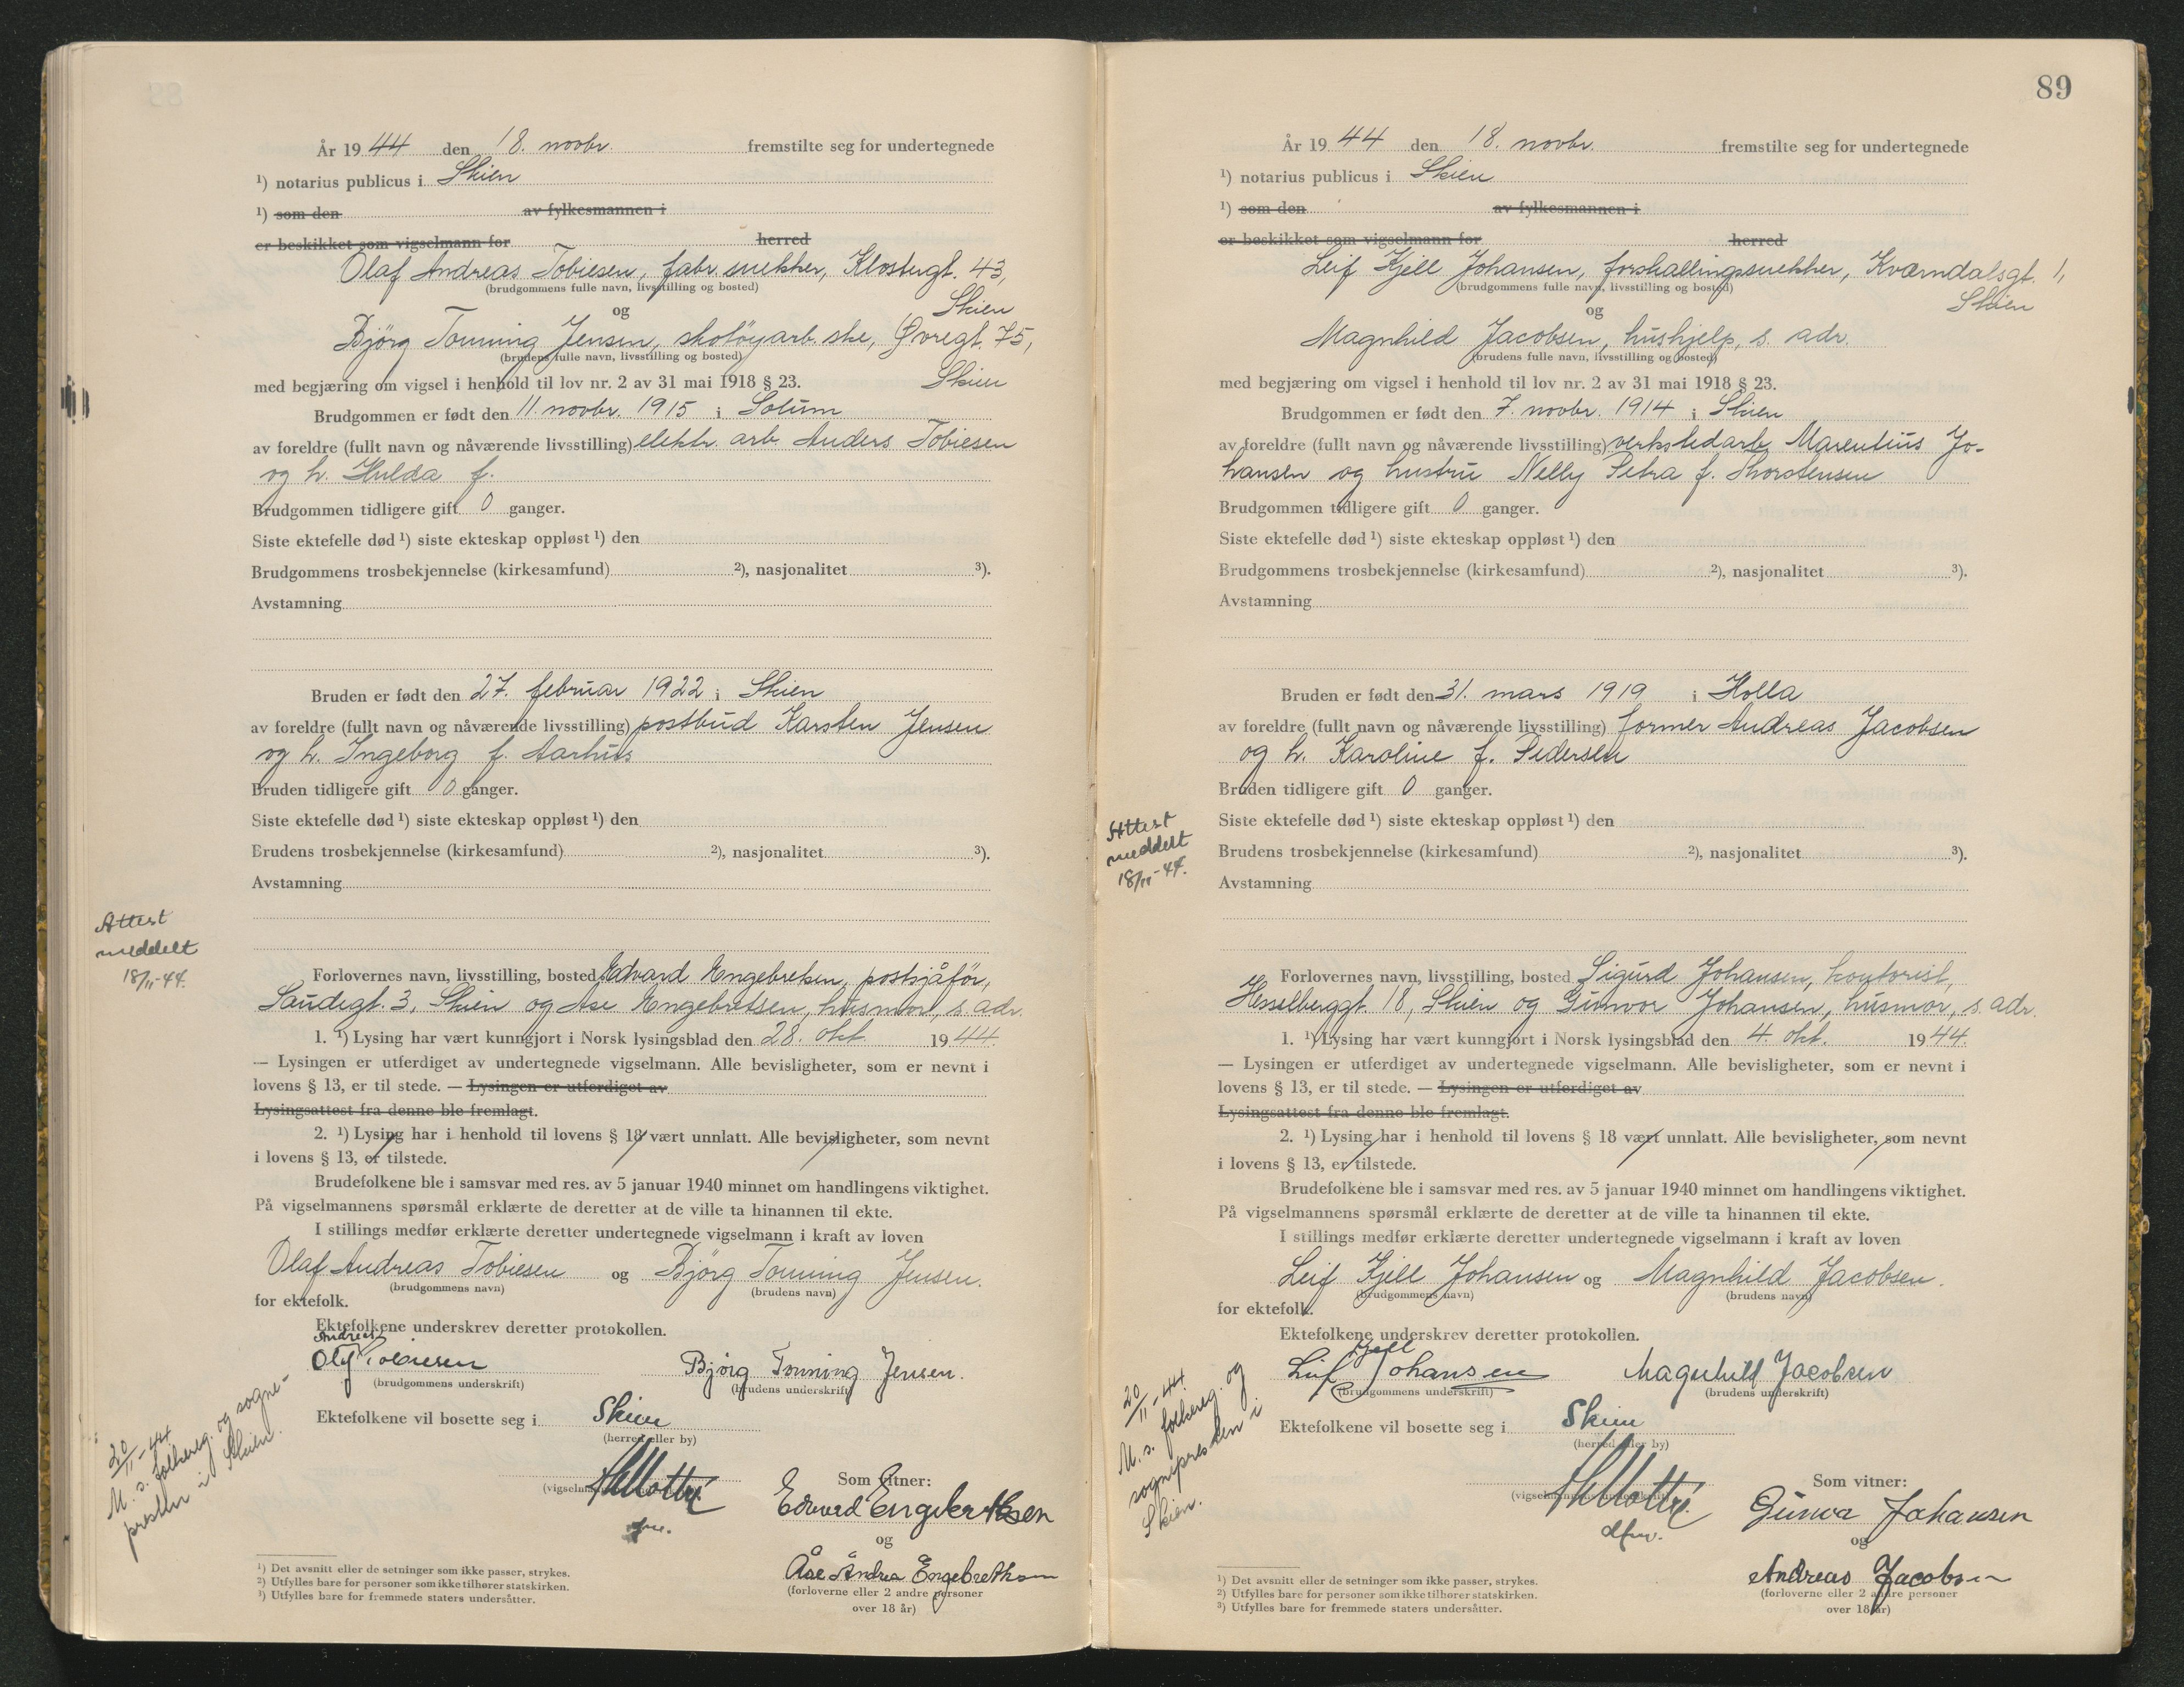 År 1944 den 18. novbr. fremstilte seg for undertegnede
¹) notarius publicus i Skien
¹) som den av fylkesmannen i
er beskikket som vigselmann for herred
Olaf Andreas Tobiesen, fabr. snekker, Klostergt. 43,
(brudgommens fulle navn, livsstilling og bosted)
Skien
og
Bjørg Tonning Jensen, skotøyarb.ske, Øvregt. 75,
(brudens fulle navn, livsstilling og bosted)
med begjæring om vigsel i henhold til lov nr. 2 av 31 mai 1918 § 23. Skien
Brudgommen er født den 11. novbr. 1915 i Solum
av foreldre (fullt navn og nåværende livsstilling) elektr. arb. Anders Tobiesen
og h. Hulda f.
Brudgommen tidligere gift 0 ganger.
Siste ektefelle død ¹) siste ekteskap oppløst ¹) den
Brudgommens trosbekjennelse (kirkesamfund) ²), nasjonalitet ³).
Avstamning
Bruden er født den 27. februar 1922 i Skien
av foreldre (fullt navn og nåværende livsstilling) postbud Karsten Jensen
og h. Ingeborg f. Aarhus
Bruden tidligere gift 0 ganger.
Siste ektefelle død ¹) siste ekteskap oppløst ¹) den
Brudens trosbekjennelse (kirkesamfund) ²), nasjonalitet ³).
Avstamning
Attest
meddelt
18/11-44.
Forlovernes navn, livsstilling, bosted Edvard Engebretsen, postsjåfør,
Saudegt. 3, Skien og Åse Engebretsen, husmor, s. adr.
1. ¹) Lysing har vært kunngjort i Norsk lysingsblad den 28. okt. 1944.
— Lysingen er utferdiget av undertegnede vigselmann. Alle bevisligheter, som er nevnt i
lovens § 13, er til stede. — Lysingen er utferdiget av
Lysingsattest fra denne ble fremlagt.
2. ¹) Lysing har i henhold til lovens § 18 vært unnlatt. Alle bevisligheter, som nevnt
i lovens § 13, er tilstede.
Brudefolkene ble i samsvar med res. av 5 januar 1940 minnet om handlingens viktighet.
På vigselmannens spørsmål erklærte de deretter at de ville ta hinannen til ekte.
I stillings medfør erklærte deretter undertegnede vigselmann i kraft av loven
Olaf Andreas Tobiesen og Bjørg Tonning Jensen.
(brudgommens navn) (brudens navn)
for ektefolk.
Ektefolkene underskrev deretter protokollen.
Andreas
Olaf Tobiesen Bjørg Tonning Jensen.
(brudgommens underskrift) (brudens underskrift)
Ektefolkene vil bosette seg i Skien
(herred eller by)
20/11-44
M. s. folkereg. og sogne-
presten i Skien.
Som vitner:
Edvard Engebrethsen
og
Åse Andrea Engebrethsen
(forloverne eller 2 andre personer
over 18 år)
¹) Det avsnitt eller de setninger som ikke passer, strykes.
²) Utfylles bare for personer som ikke tilhører statskirken.
³) Utfylles bare for fremmede staters undersåtter.
89
År 1944 den 18. novbr. fremstilte seg for undertegnede
¹) notarius publicus i Skien
¹) som den av fylkesmannen i
er beskikket som vigselmann for herred
Leif Kjell Johansen, forskallingssnekker, Kværndalsgt. 1,
(brudgommens fulle navn, livsstilling og bosted)
Skien
og
Magnhild Jacobsen, hushjelp, s. adr.
(brudens fulle navn, livsstilling og bosted)
med begjæring om vigsel i henhold til lov nr. 2 av 31 mai 1918 § 23.
Brudgommen er født den 7. novbr. 1914 i Skien
av foreldre (fullt navn og nåværende livsstilling) verkstedarb. Marentius Jo-
hansen og hustru Nelly Petra f. Thorstensen
Brudgommen tidligere gift 0 ganger.
Siste ektefelle død ¹) siste ekteskap oppløst ¹) den
Brudgommens trosbekjennelse (kirkesamfund) ²), nasjonalitet ³).
Avstamning
Bruden er født den 31. mars 1919 i Holla
av foreldre (fullt navn og nåværende livsstilling) former Andreas Jacobsen
og h. Karoline f. Pedersen
Bruden tidligere gift 0 ganger.
Siste ektefelle død ¹) siste ekteskap oppløst ¹) den
Brudens trosbekjennelse (kirkesamfund) ²), nasjonalitet ³).
Avstamning
Attest
meddelt
18/11-44.
Forlovernes navn, livsstilling, bosted Sigurd Johansen, kontorist,
Hesselberggt. 18, Skien og Gunvor Johansen, husmor, s. adr.
1. ¹) Lysing har vært kunngjort i Norsk lysingsblad den 4. okt. 1944.
— Lysingen er utferdiget av undertegnede vigselmann. Alle bevisligheter, som er nevnt i
lovens § 13, er til stede. — Lysingen er utferdiget av
Lysingsattest fra denne ble fremlagt.
2. ¹) Lysing har i henhold til lovens § 18 vært unnlatt. Alle bevisligheter, som nevnt
i lovens § 13, er tilstede.
Brudefolkene ble i samsvar med res. av 5 januar 1940 minnet om handlingens viktighet.
På vigselmannens spørsmål erklærte de deretter at de ville ta hinannen til ekte.
I stillings medfør erklærte deretter undertegnede vigselmann i kraft av loven
Leif Kjell Johansen og Magnhild Jacobsen.
(brudgommens navn) (brudens navn)
for ektefolk.
Ektefolkene underskrev deretter protokollen.
Kjell
Leif Johansen Magnhild Jacobsen
(brudgommens underskrift) (brudens underskrift)
Ektefolkene vil bosette seg i Skien
(herred eller by)
20/11-44.
M. s. folkereg. og
sognepresten i
Skien.
Som vitner:
Gunvor Johansen
og
Andreas Jacobsen
(forloverne eller 2 andre personer
over 18 år)
¹) Det avsnitt eller de setninger som ikke passer, strykes.
²) Utfylles bare for personer som ikke tilhører statskirken.
³) Utfylles bare for fremmede staters undersåtter.